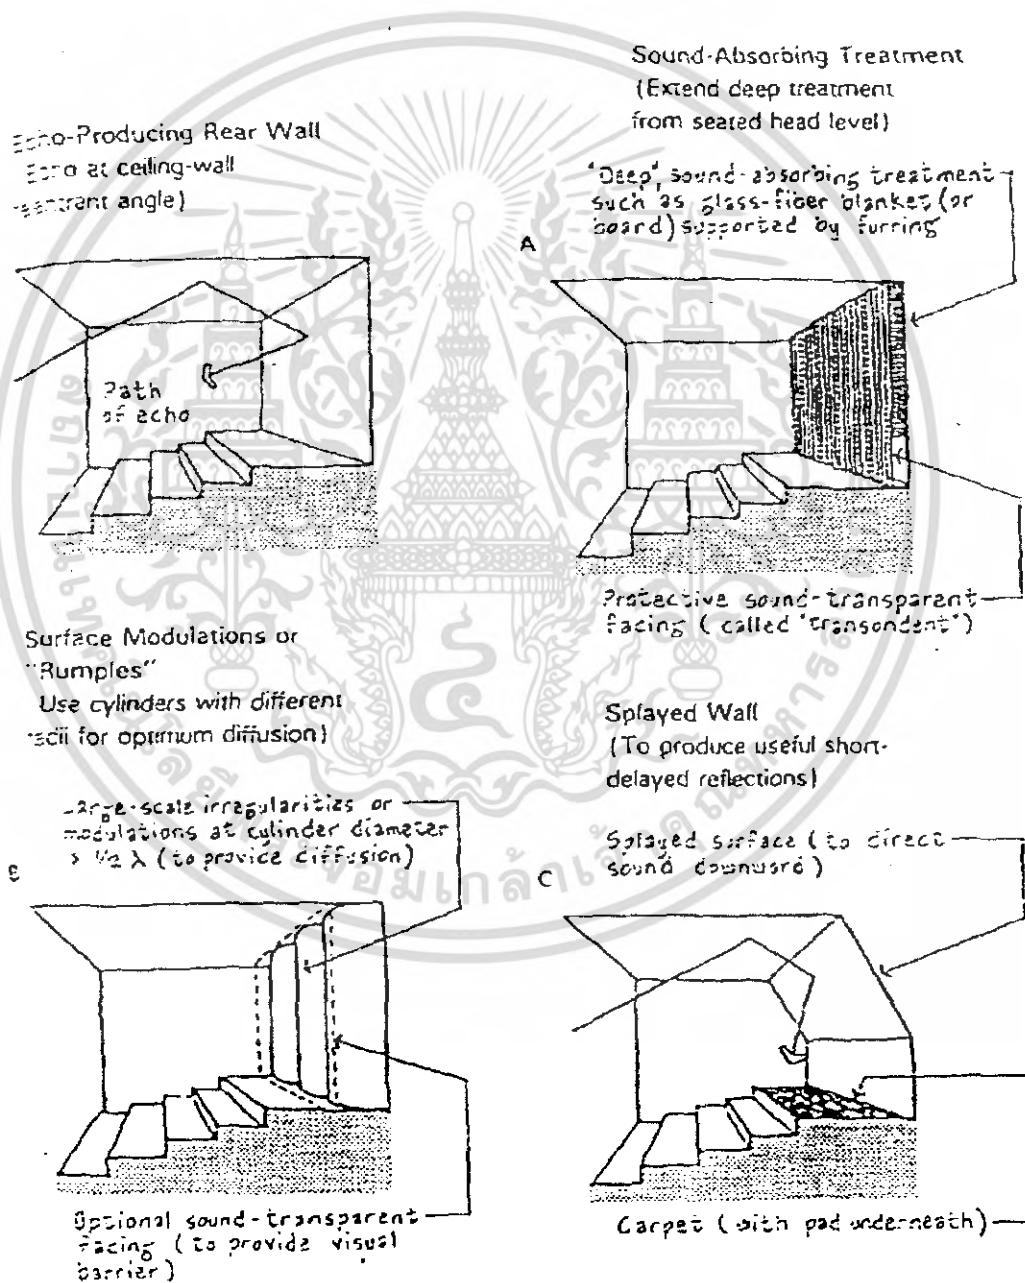 Echo-Producing Rear Wall
Echo at ceiling-wall
reentrant angle)
Path
of echo
Sound-Absorbing Treatment
(Extend deep treatment
from seated head level)
A
"Deep", sound-absorbing treatment
such as glass-fiber blanket (or
board) supported by furring
Protective sound-transparent
facing ( called "transondent")
Surface Modulations or
"Rumples"
Use cylinders with different
radii for optimum diffusion)
B
Large-scale irregularities or
modulations at cylinder diameter
> 1/2 λ (to provide diffusion)
Optional sound-transparent
facing (to provide visual
barrier)
Splayed Wall
(To produce useful short-
delayed reflections)
C
Splayed surface (to direct
sound downward)
Carpet (with pad underneath)